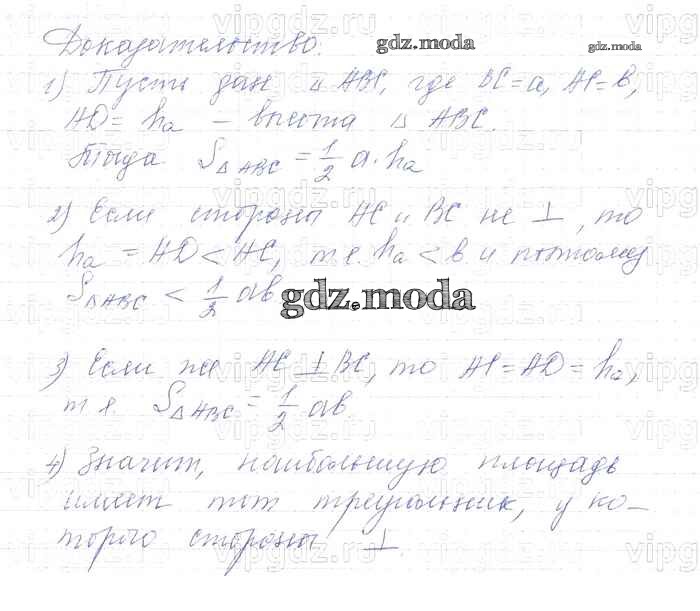 Доказательство.
gdz.moda
gdz.moda
1) Пусть дан △ ABC, где BC=a, AC=b,
AD= hₐ – высота △ ABC.
Тогда S△ABC = 1/2 a·hₐ
2) Если стороны AC и BC не ⊥, то
hₐ = AD < AC, т.е. hₐ < b и потому
S△ABC < 1/2 ab.
gdz.moda
3) Если же AC ⊥ BC, то AC=AD=hₐ,
т.е. S△ABC = 1/2 ab.
4) Значит, наибольшую площадь
имеет тот треугольник, у ко-
торого стороны ⊥.
vipgdz.ru